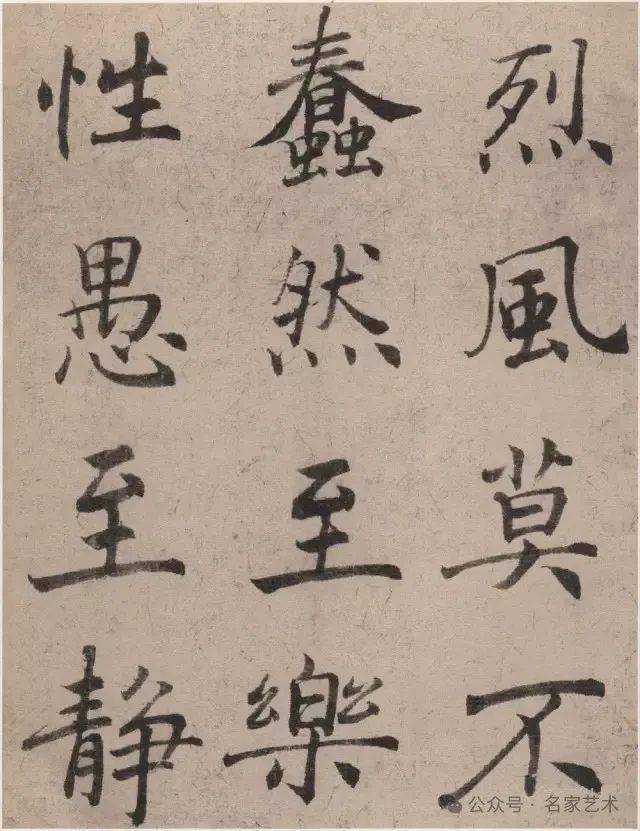 烈風莫不
蠢然至樂
性愚至静
公众号·名家艺术